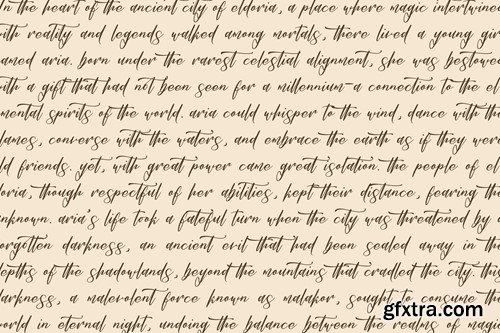 In the heart of the ancient city of eldoria, a place where magic intertwine
ith reality and legends walked among mortals, there lived a young gir
amed aria. born under the rarest celestial alignment, she was bestowe
ith a gift that had not been seen for a millennium-a connection to the el
mental spirits of the world. aria could whisper to the wind, dance with th
lames, converse with the waters, and embrace the earth as if they were
ld friends. yet, with great power came great isolation. the people of el
doria, though respectful of her abilities, kept their distance, fearing the
nknown. aria's life took a fateful turn when the city was threatened by
orgotten darkness, an ancient evil that had been sealed away in the
epths of the shadowlands, beyond the mountains that cradled the city. th
arkness, a malevolent force known as malakor, sought to consume th
orld in eternal night, undoing the balance between the realms of
gfxtra.com